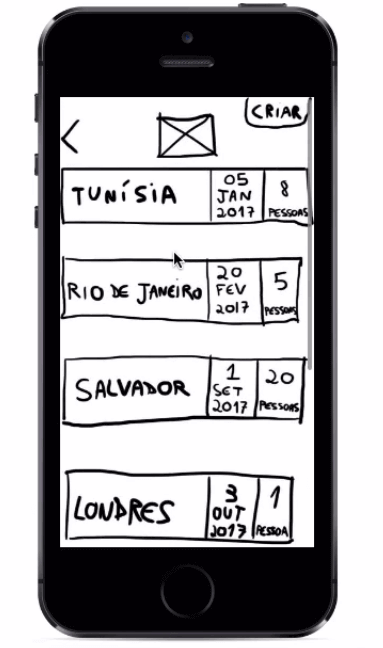 CRIAR
TUNÍSIA
05
JAN
2017
8
PESSOAS
RIO DE JANEIRO
20
FEV
2017
5
PESSOAS
SALVADOR
1
SET
2017
20
PESSOAS
LONDRES
3
OUT
2017
1
PESSOA